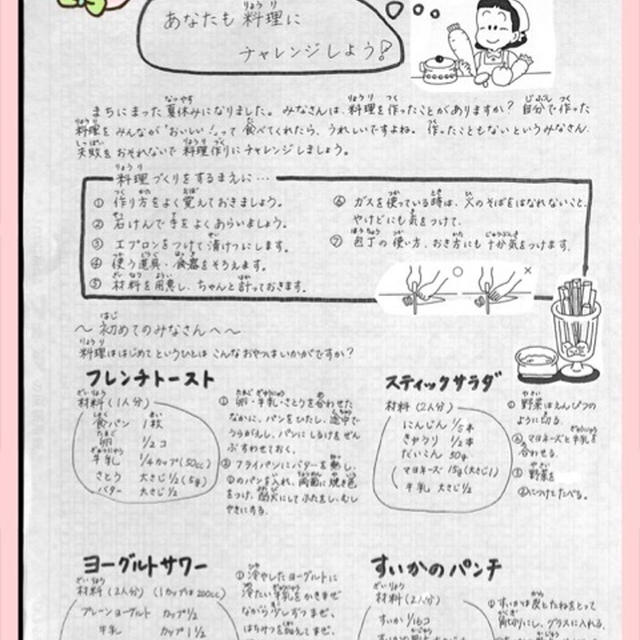 あなたも料理に
チャレンジしよう!
まちにまった夏休みになりました。みなさんは、料理を作ったことがありますか？自分で作った
料理をみんなが"おいしい!"って食べてくれたら、うれしいですよね。作ったこともないというみなさん、
失敗をおそれないで料理作りにチャレンジしましょう。
料理づくりをするまえに…
① 作り方をよく覚えておきましょう。
② 石けんで手をよくあらいましょう。
③ エプロンをつけて清けつにします。
④ 使う道具・食器をそろえます。
⑤ 材料を用意し、ちゃんと計っておきます。
⑥ ガスを使っている時は、火のそばをはなれないこと。
やけどにも気をつけて。
⑦ 包丁の使い方、おき方にも十分気をつけます。
〜初めてのみなさんへ〜
料理ははじめてというひとは こんなおやつはいかがですか？
フレンチトースト
材料(1人分)
食パン 1枚
卵 1/2コ
牛乳 1/4カップ(50cc)
さとう 大さじ1/2(5g)
バター 大さじ1/2
① 卵・牛乳・さとうを合わせた
なかに、パンをひたし、途中で
うらがえし、パンにしるけをぜん
ぶすわせておく。
② フライパンにバターを熱し、
①のパンを入れ、両面に焼き色
をつけ、弱火にしてふたをし、むし
やきにする。
スティックサラダ
材料(2人分)
にんじん 1/5本
きゅうり 1/2本
だいこん 50g
マヨネーズ 15g(大さじ1)
牛乳 大さじ1/2
① 野菜はえんぴつの
ように切る。
② マヨネーズと牛乳を
合わせる。
③ 野菜を
②につけてたべる。
ヨーグルトサワー
材料(2人分)(1カップは200cc)
プレーンヨーグルト カップ1/2
牛乳 カップ1 1/2
① 冷やしたヨーグルトに
冷たい牛乳をかきまぜ
ながら少しずつまぜ、
はちみつを加えてまぜ、
すいかのパンチ
材料(2人分)
すいか 1/16コ
① すいかは皮としたねをとって
角切りにし、グラスに入れる。